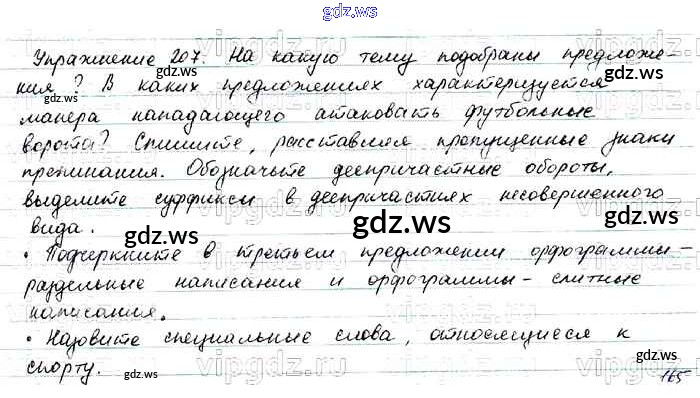 gdz.ws
Упражнение 207. На какую тему подобраны предложе-
ния? В каких предложениях характеризуется
манера нападающего атаковать футбольные
ворота? Спишите, расставляя пропущенные знаки
препинания. Обозначьте деепричастные обороты,
выделите суффиксы в деепричастиях несовершенного
вида.
• Подчеркните в третьем предложении орфограммы-
раздельные написания и орфограммы - слитные
написания.
• Назовите специальные слова, относящиеся к
спорту.
165